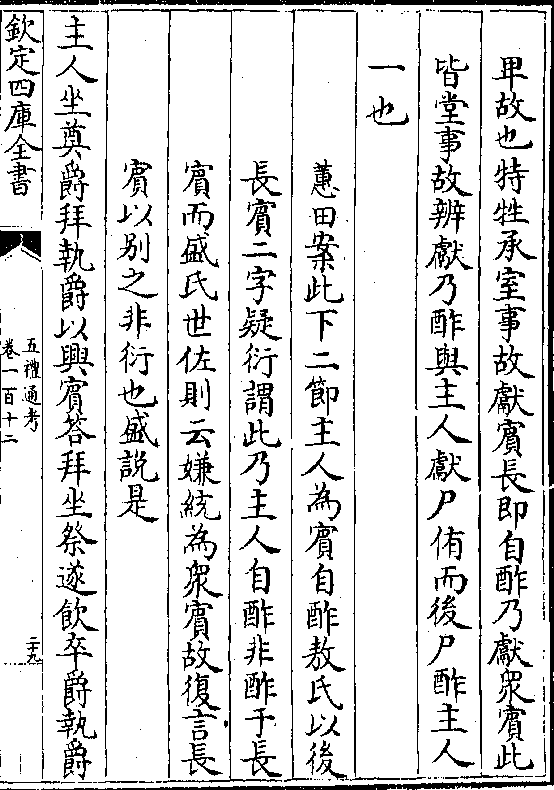 卑故也特牲承室事故獻賓長即自酢乃獻眾賓此
皆堂事故辨獻乃酢與主人獻尸侑而後尸酢主人
一也
蕙田案此下二節主人為賓自酢敖氏以後
長賓二字疑衍謂此乃主人自酢非酢于長
賓而盛氏世佐則云嫌統為眾賓故復言長
賓以别之非衍也盛説是
主人坐奠爵拜執爵以興賓答拜坐祭遂飲卒爵執爵
欽定四庫全書
五禮通考
卷一百十二
二十九